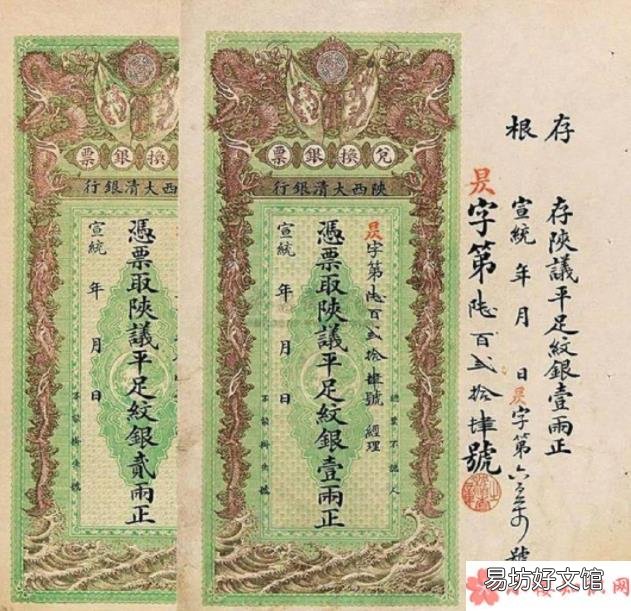 存根
存陝議平足紋銀壹兩正
宣統 年 月 日 昃字第
昃字第陸百弍拾肆號
兌換銀票
陝西大清銀行
昃字第陸百弍拾肆號 經理
憑票取陝議平足紋銀壹兩正
宣統 年 月 日
換銀票
陝西大清銀行
憑票取陝議平足紋銀貳兩正
宣統 年 月 日
易坊好文馆
网